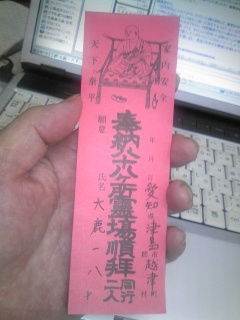 家内安全
天下泰平
年 月 日
愛知県津島市郡越津町村
奉納八十八ヶ所靈場順拝同行二人
願意
氏名 大鹿一八 才